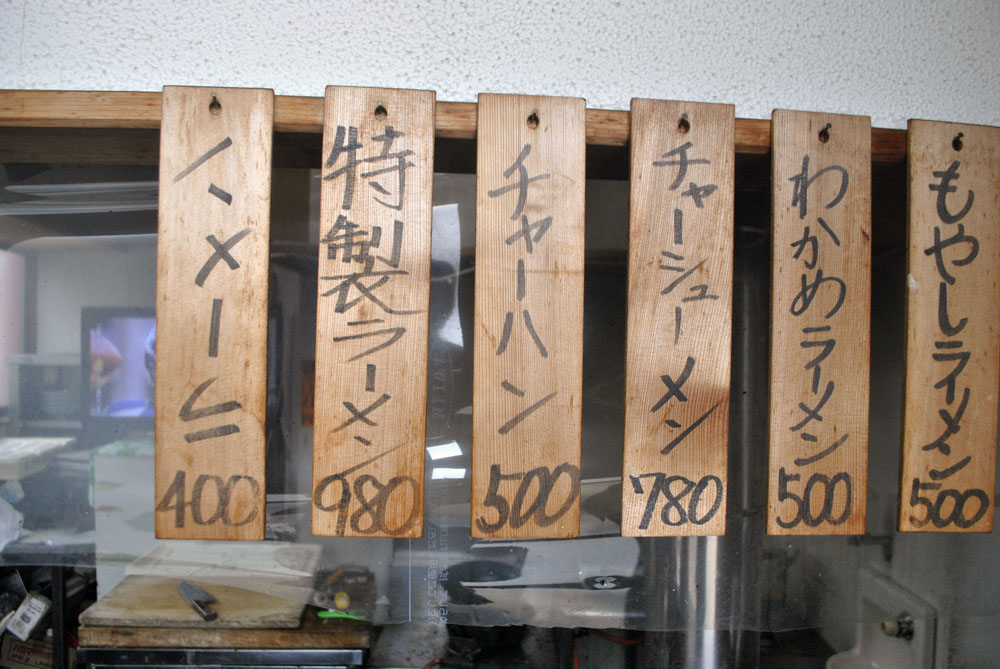 もやしラーメン
500
わかめラーメン
500
チャーシューメン
780
チャーハン
500
特製ラーメン
980
ラーメン
400